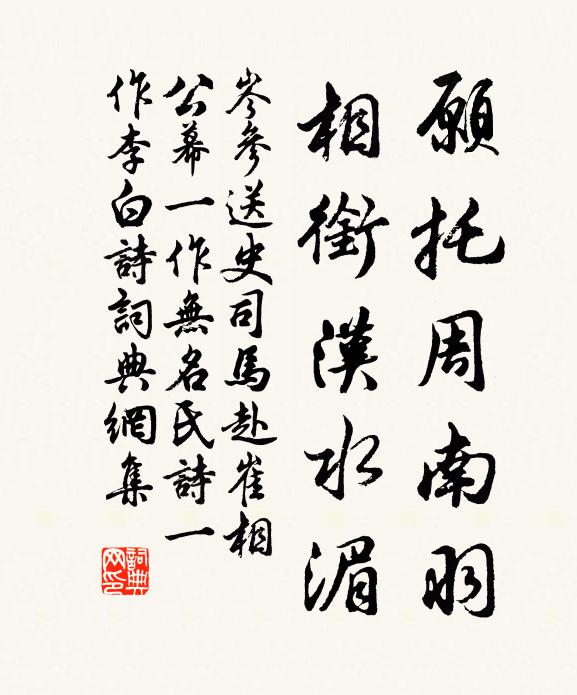 願托周南羽
相銜漢水湄
岑參送史司馬赴崔相
公幕一作無名氏詩一
作李白詩詞典網集
詞典网印